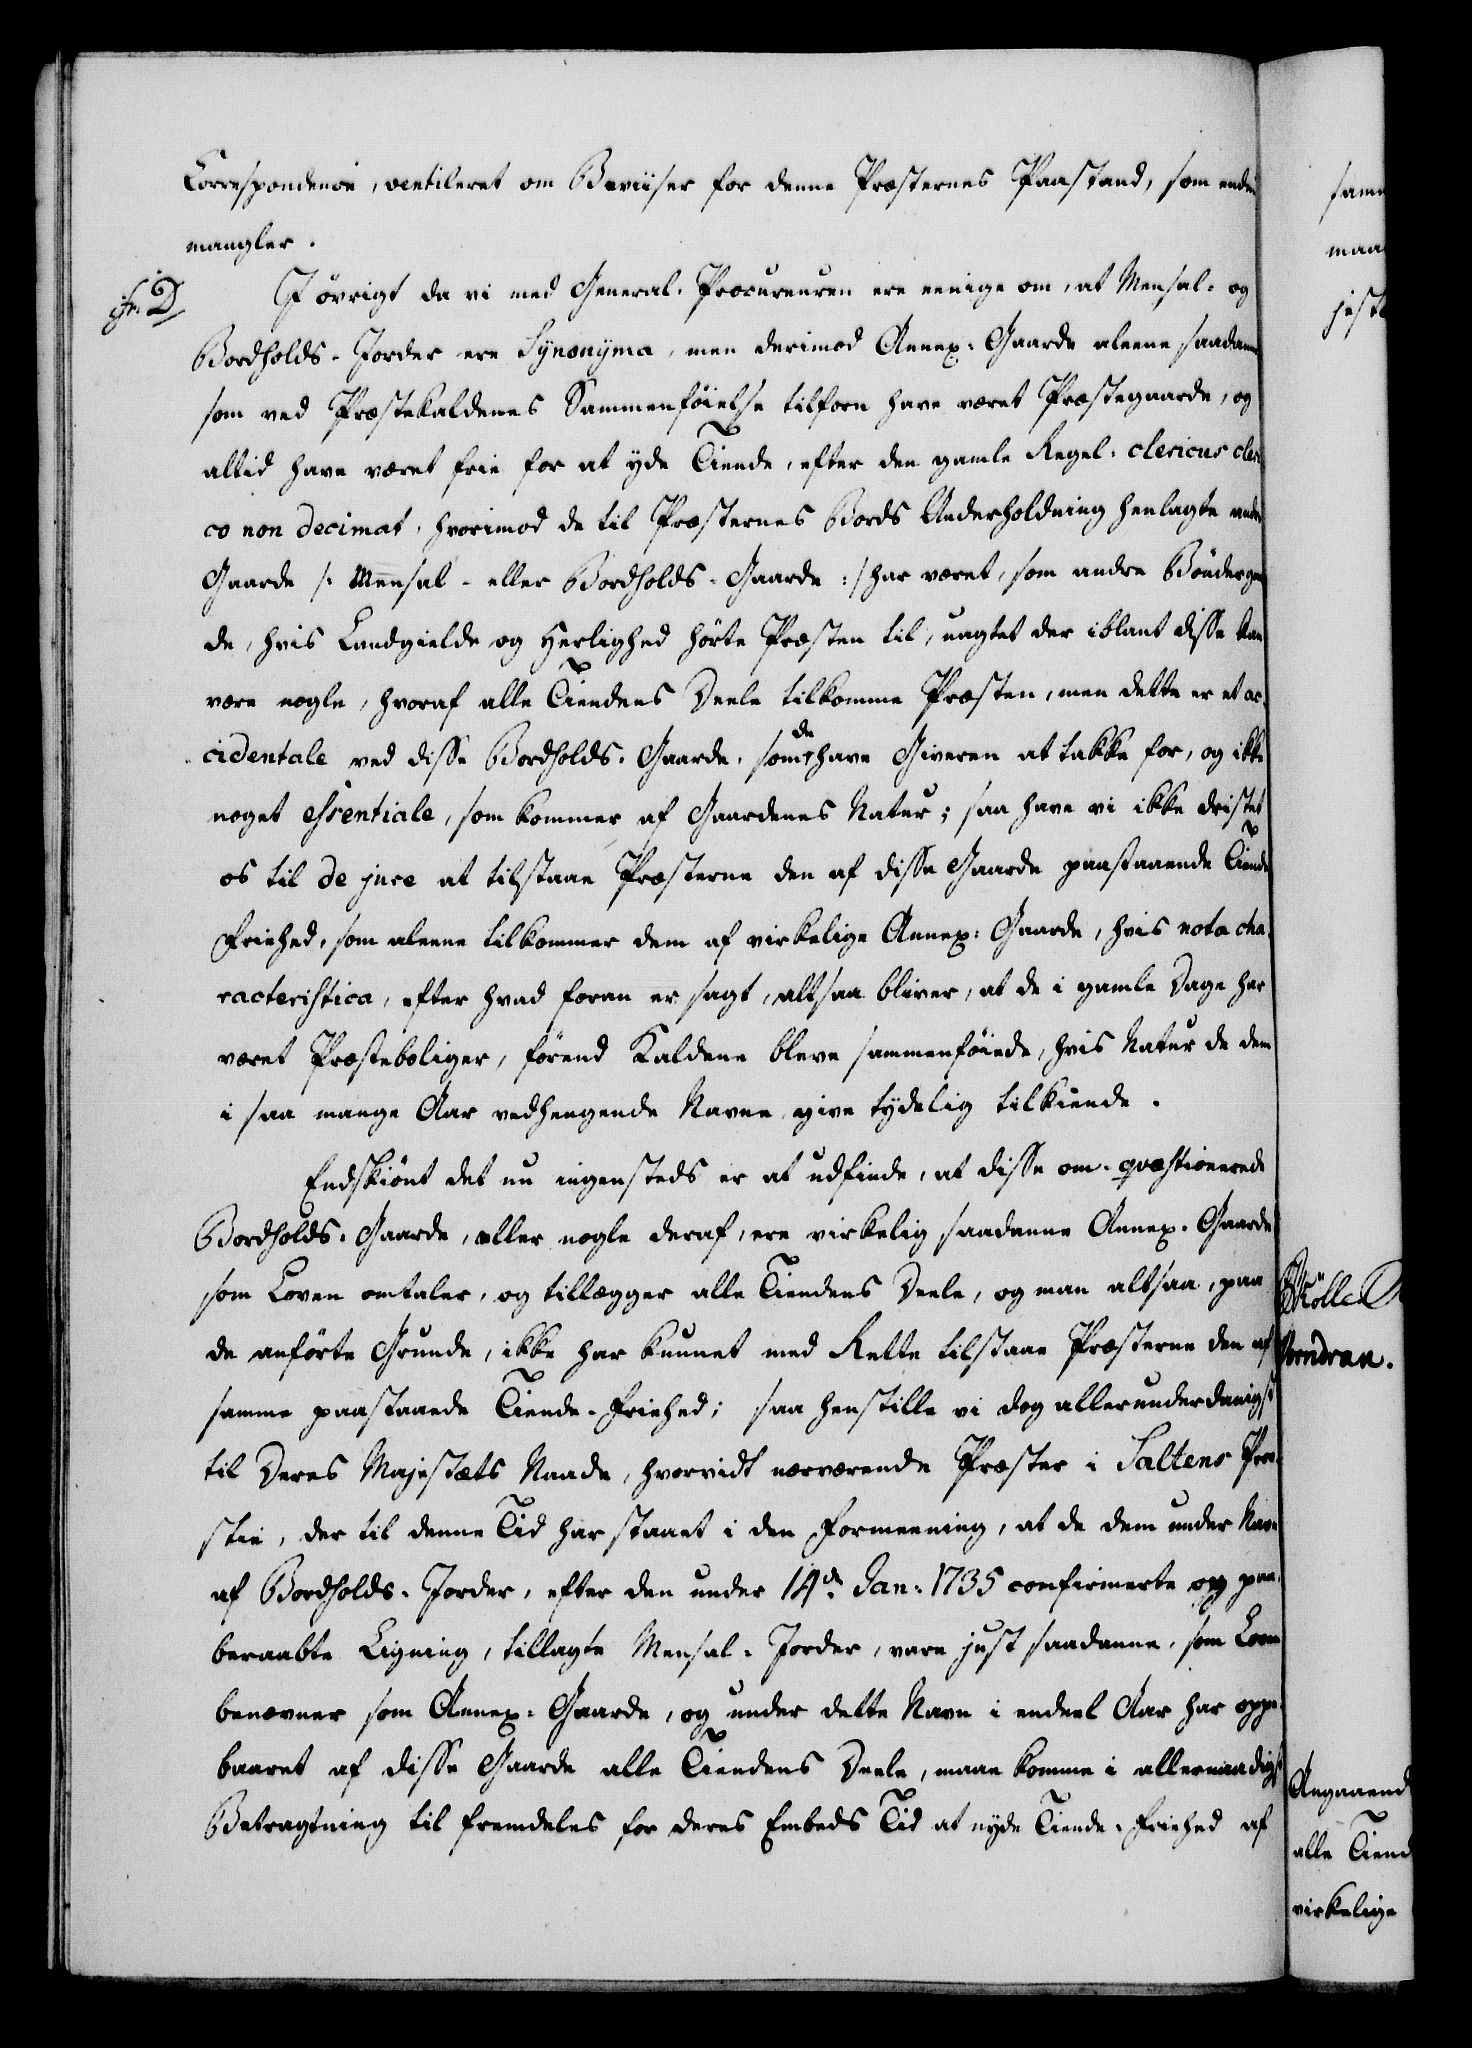 Correspondence, ventileret om Beviiser for denne Præsternes Paastand, som endnu
mangler.
cfr. D.
I övrigt da vi med General-Procureuren ere eenige om, at Mensal- og
Bordholds-Jorder ere Synonyma, men derimod Annex-Gaarde aleene saadanne
som ved Præstekaldenes Sammenföielse tilforn have været Præstegaarde, og
altid have været frie for at yde Tiende, efter den gamle Regel: clericus cleri-
co non decimat, hvorimod de til Præsternes Bords Underholdning henlagte andre
Gaarde /: Mensal- eller Bordholds-Gaarde :/ har været, som andre Böndergaar-
de, hvis Landgielde og Herlighed hörte Præsten til, uagtet der iblant disse kan
være nogle, hvoraf alle Tiendens Deele tilkomme Præsten, men dette er et ac-
cidentale ved disse Bordholds-Gaarde, som de have Giveren at takke for, og ikke
noget essentiale, som kommer af Gaardenes Natur; saa have vi ikke dristet
os til de jure at tilstaae Præsterne den af disse Gaarde paastaaende Tiende
Friehed, som aleene tilkommer dem af virkelige Annex-Gaarde, hvis nota cha-
racteristica, efter hvad foran er sagt, altsaa bliver, at de i gamle Dage har
været Præsteboliger, förend Kaldene bleve sammenföiede, hvis Natur de dem
i saa mange Aar vedhengende Navne give tydelig tilkiende.
Endskiönt det nu ingensteds er at udfinde, at disse om-qvæstionerede
Bordholds-Gaarde, eller nogle deraf, ere virkelig saadanne Annex-Gaarde
som Loven omtaler, og tillægger alle Tiendens Deele, og man altsaa, paa
de anförte Grunde, ikke har kunnet med Rette tilstaae Præsterne den af
samme paastaaede Tiende-Friehed; saa henstille vi dog allerunderdanigst
til Deres Majestæts Naade, hvorvidt nærværende Præster i Saltens Pro-
stie, der til denne Tid har staaet i den Formeening, at de dem under Navn
af Bordholds-Jorder, efter den under 14de Jan: 1735 confirmerte og paa-
beraabte Ligning, tillagte Mensal-Jorder, vare just saadanne, som Loven
benævner som Annex-Gaarde, og under dette Navn i endeel Aar har oppe-
baaret af disse Gaarde alle Tiendens Deele, maae komme i allernaadigst
Betragtning til fremdeles for deres Embeds Tid at nyde Tiende-Friehed af